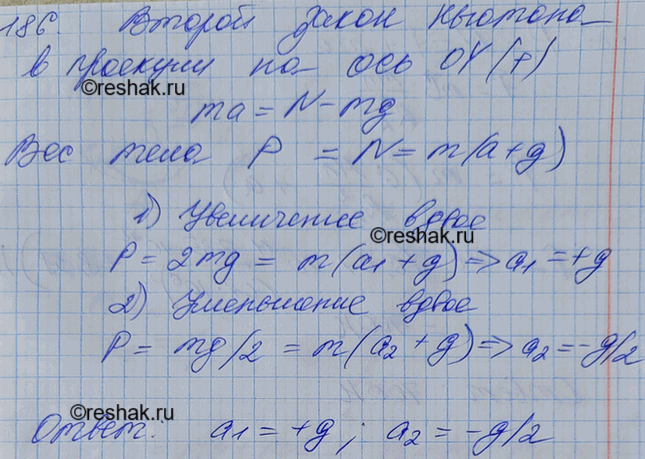 186. Второй закон Ньютона
в проекции на ось OY(↑)
©reshak.ru
ma = N - mg
Вес тела P = N = m(a+g)
1) Увеличение вдвое
©reshak.ru
P = 2mg = m(a1 + g) => a1 = +g
2) Уменьшение вдвое
P = mg/2 = m(a2 + g) => a2 = -g/2
©reshak.ru
Ответ: a1 = +g; a2 = -g/2